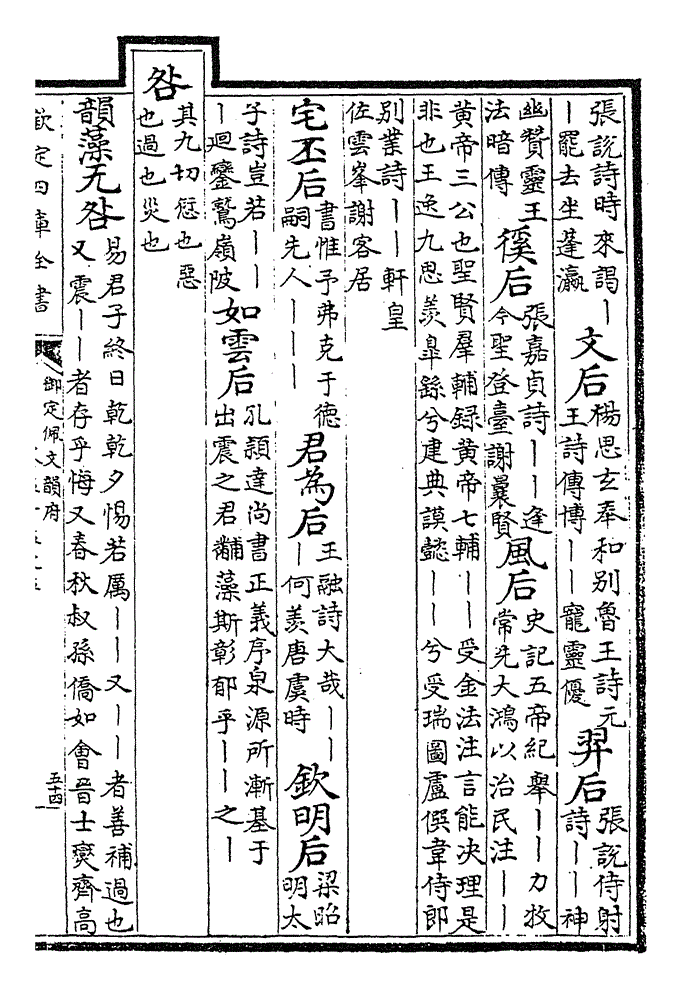 張說詩時來謁丨
丨罷去坐蓬瀛
文后
楊思玄奉和别魯王詩元
王詩傳博丨丨寵靈優
羿后
張說侍射
詩丨丨神
幽贊靈王
法暗傳
徯后
張嘉貞詩丨丨逢
今聖登臺謝曩賢
風后
史記五帝紀舉丨丨力牧
常先大鴻以治民注丨丨
黄帝三公也聖賢羣輔録黄帝七輔丨丨受金法注言能决理是
非也王逸九思羡臯繇兮建典謨懿丨丨兮受瑞圖盧僎韋侍郎
别業詩丨丨軒皇
佐雲峯謝客居
宅丕后
書惟予弗克于德
嗣先人丨丨丨
君為后
王融詩大哉丨丨
丨何羡唐虞時
欽明后
梁昭
明太
子詩豈若丨丨
丨迴鑾鷲嶺陂
如雲后
孔頴達尚書正義序泉源所漸基于
出震之君黼藻斯彰郁乎丨丨之丨
咎
其九切愆也惡
也過也災也
韻藻无咎
易君子終日乾乾夕惕若厲丨丨又丨丨者善補過也
又震丨丨者存乎悔又春秋叔孫僑如會晉士燮齊高
欽定四庫全書
御定佩文韻府
五十四